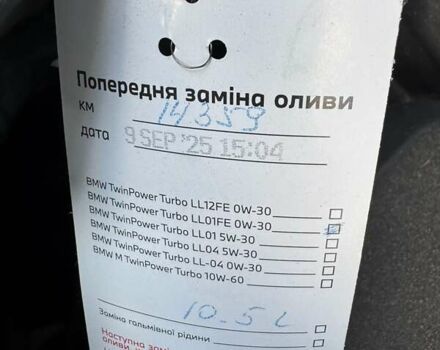 Попередня заміна оливи
км 14359
дата 9 SEP '25 15:04
BMW TwinPower Turbo LL12FE 0W-30
BMW TwinPower Turbo LL01FE 0W-30
BMW TwinPower Turbo LL01 5W-30
BMW TwinPower Turbo LL04 5W-30
BMW TwinPower Turbo LL-04 0W-30
BMW M TwinPower Turbo 10W-60
10.5 L
Заміна гальмівної рідини
Наступна
оливи